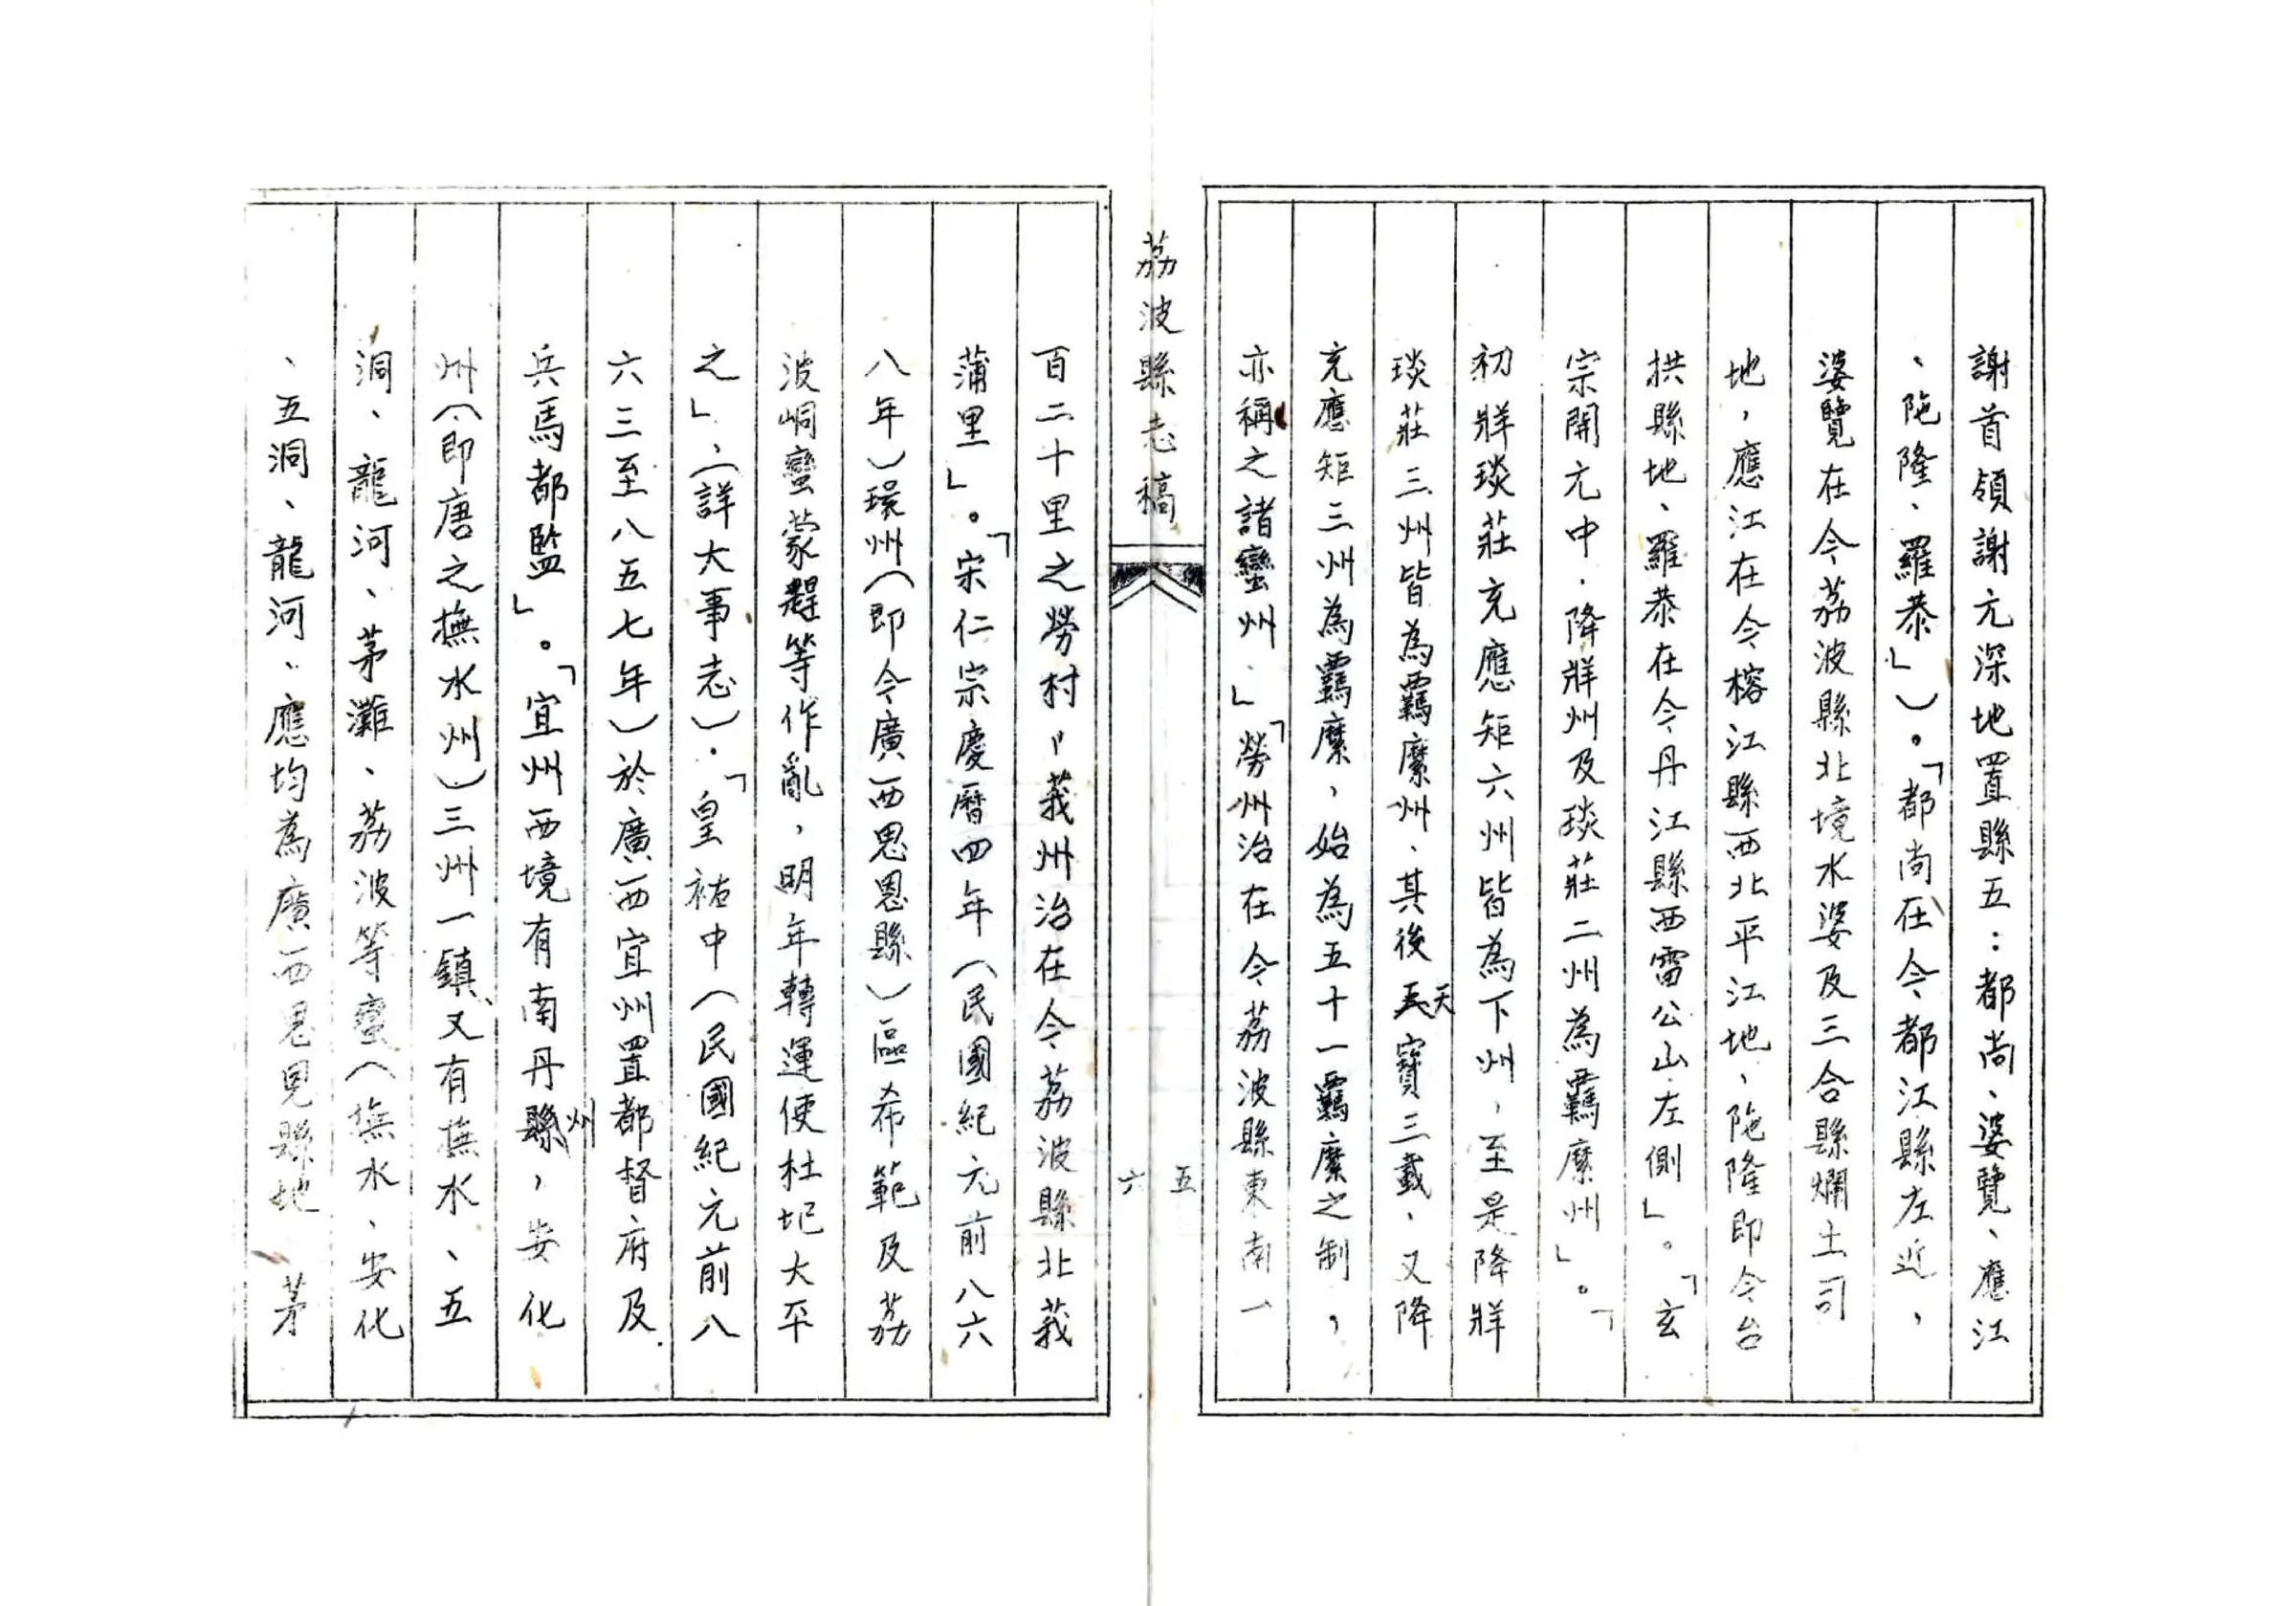 謝首領謝元深地置縣五：都尚、婆覽、應江
、陁隆、羅恭」）。「都尚在今都江縣左近，
婆覽在今荔波縣北境水婆及三合縣爛土司
地，應江在今榕江縣西北平江地、陁隆即今台
拱縣地、羅恭在今丹江縣西雷公山左側」。「玄
宗開元中．降牂州及琰莊二州為羈縻州」。「
初牂琰莊充應矩六州皆為下州，至是降牂
琰莊三州皆為羈縻州、其後天寶三載、又降
充應矩三州為羈縻，始為五十一羈縻之制，
亦稱之諸蠻州．」「勞州治在今荔波縣東南一
荔波縣志稿
五
六
百二十里之勞村〃莪州治在今荔波縣北莪
蒲里」。「宋仁宗慶曆四年（民國紀元前八六
八年）環州（即今廣西思恩縣）區希範及荔
波峒蠻蒙趕等作亂，明年轉運使杜圯大平
之」、（詳大事志）．「皇祐中（民國紀元前八
六三至八五七年）於廣西宜州置都督府及
兵馬都監」。「宜州西境有南丹州，安化
州（即唐之撫水州）三州一鎮、又有撫水、五
洞、龍河、茅灘、荔波等蠻（撫水、安化
、五洞、龍河、應均為廣西思恩縣地 茅